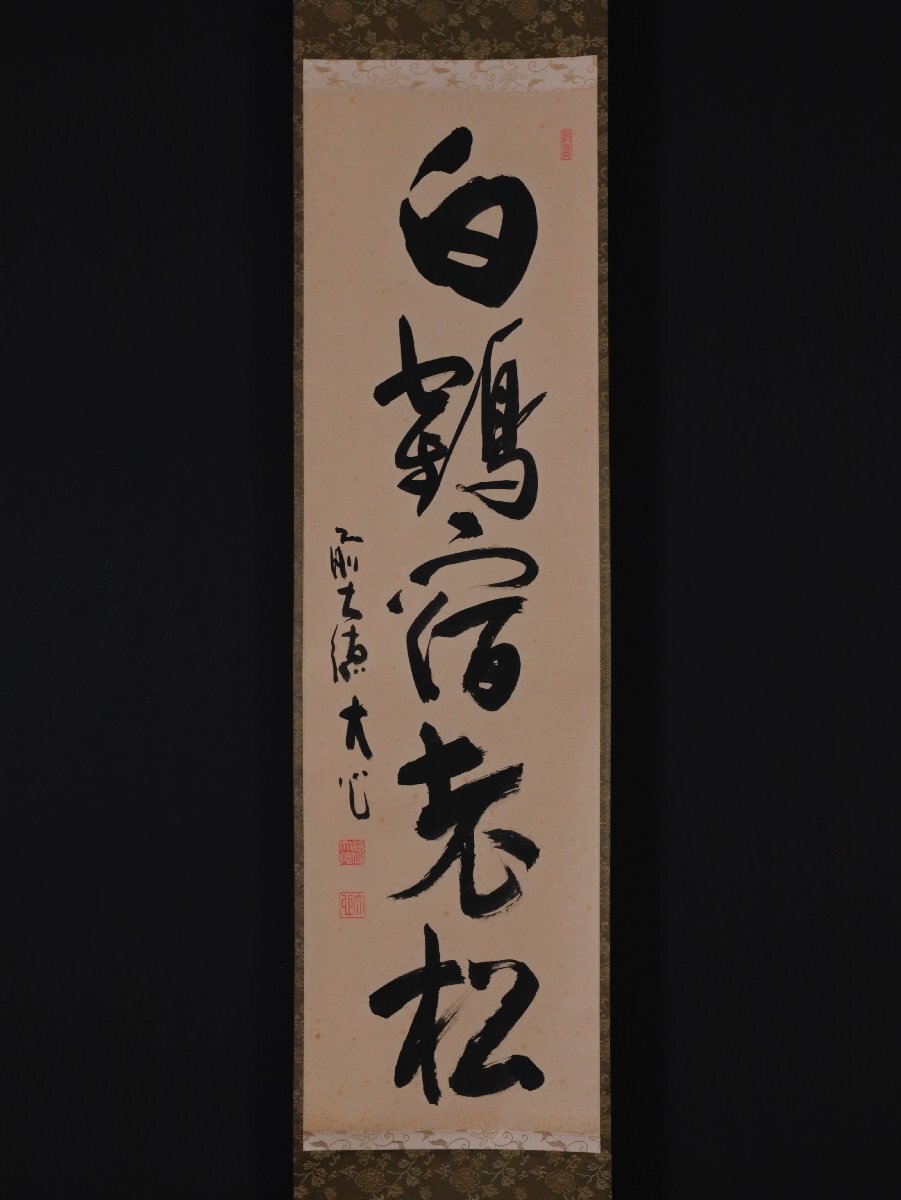 白鶴宿老松
前大徳大心